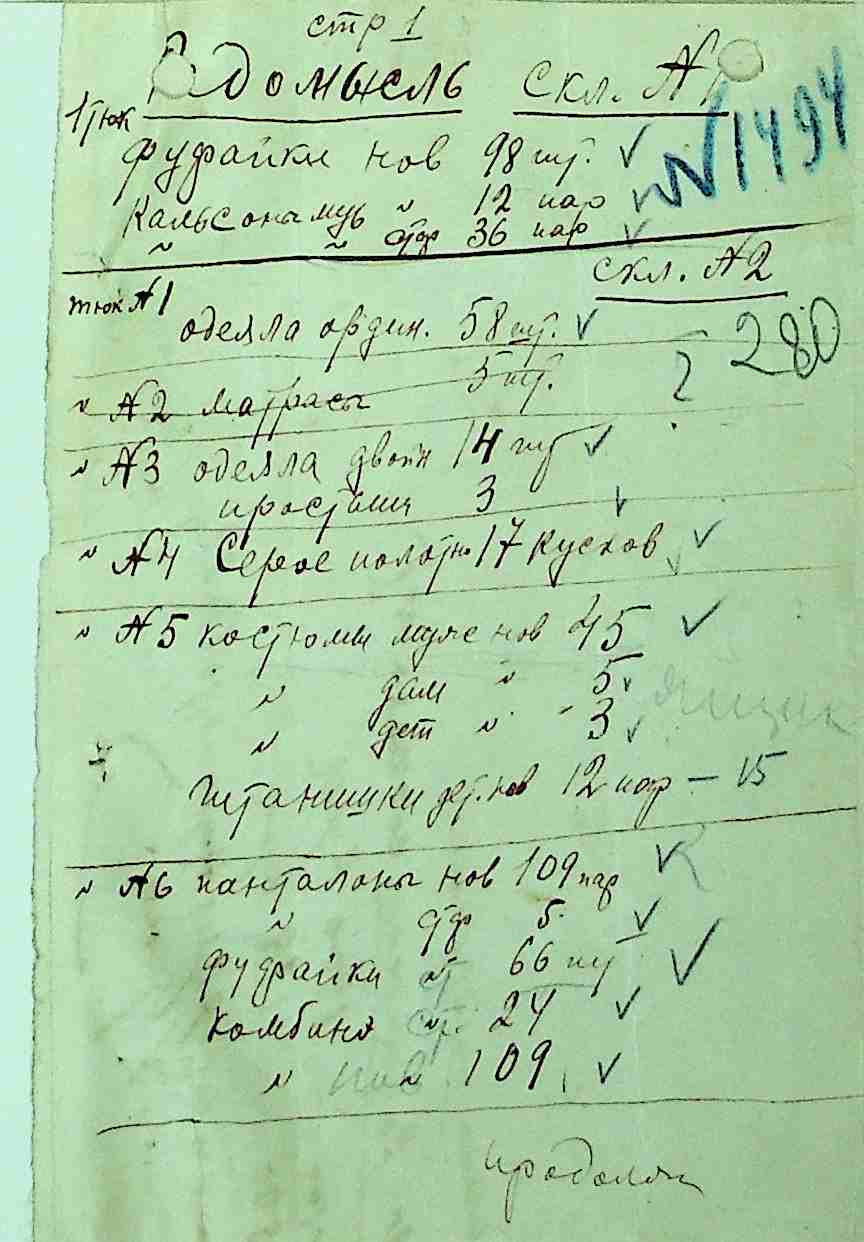 стр 1
Радомысль скл. №1
1 тюк
фуфайки нов 98 шт. ✓ №1494
Кальсоны муж " 12 пар ✓
" " стар 36 пар ✓
скл. №2
тюк №1
одеяла один. 58 шт. ✓ — 280
" №2 матрасы 5 шт. ?
" №3 одеяла двойн 14 шт ✓
простыни 3 ✓
" №4 Серое полотно 17 кусков ✓
" №5 костюмы муже нов 45 ✓
" дам " 5 ✓
" дет " - 3 ✓ Ящик
штанишки дет. нов 12 пар — 15
" №6 панталоны нов 109 пар ✓
" стар 5 ✓
фуфайки ст 66 шт ✓
комбинэ стр. 24 ✓
" нов 109 ✓
продолж